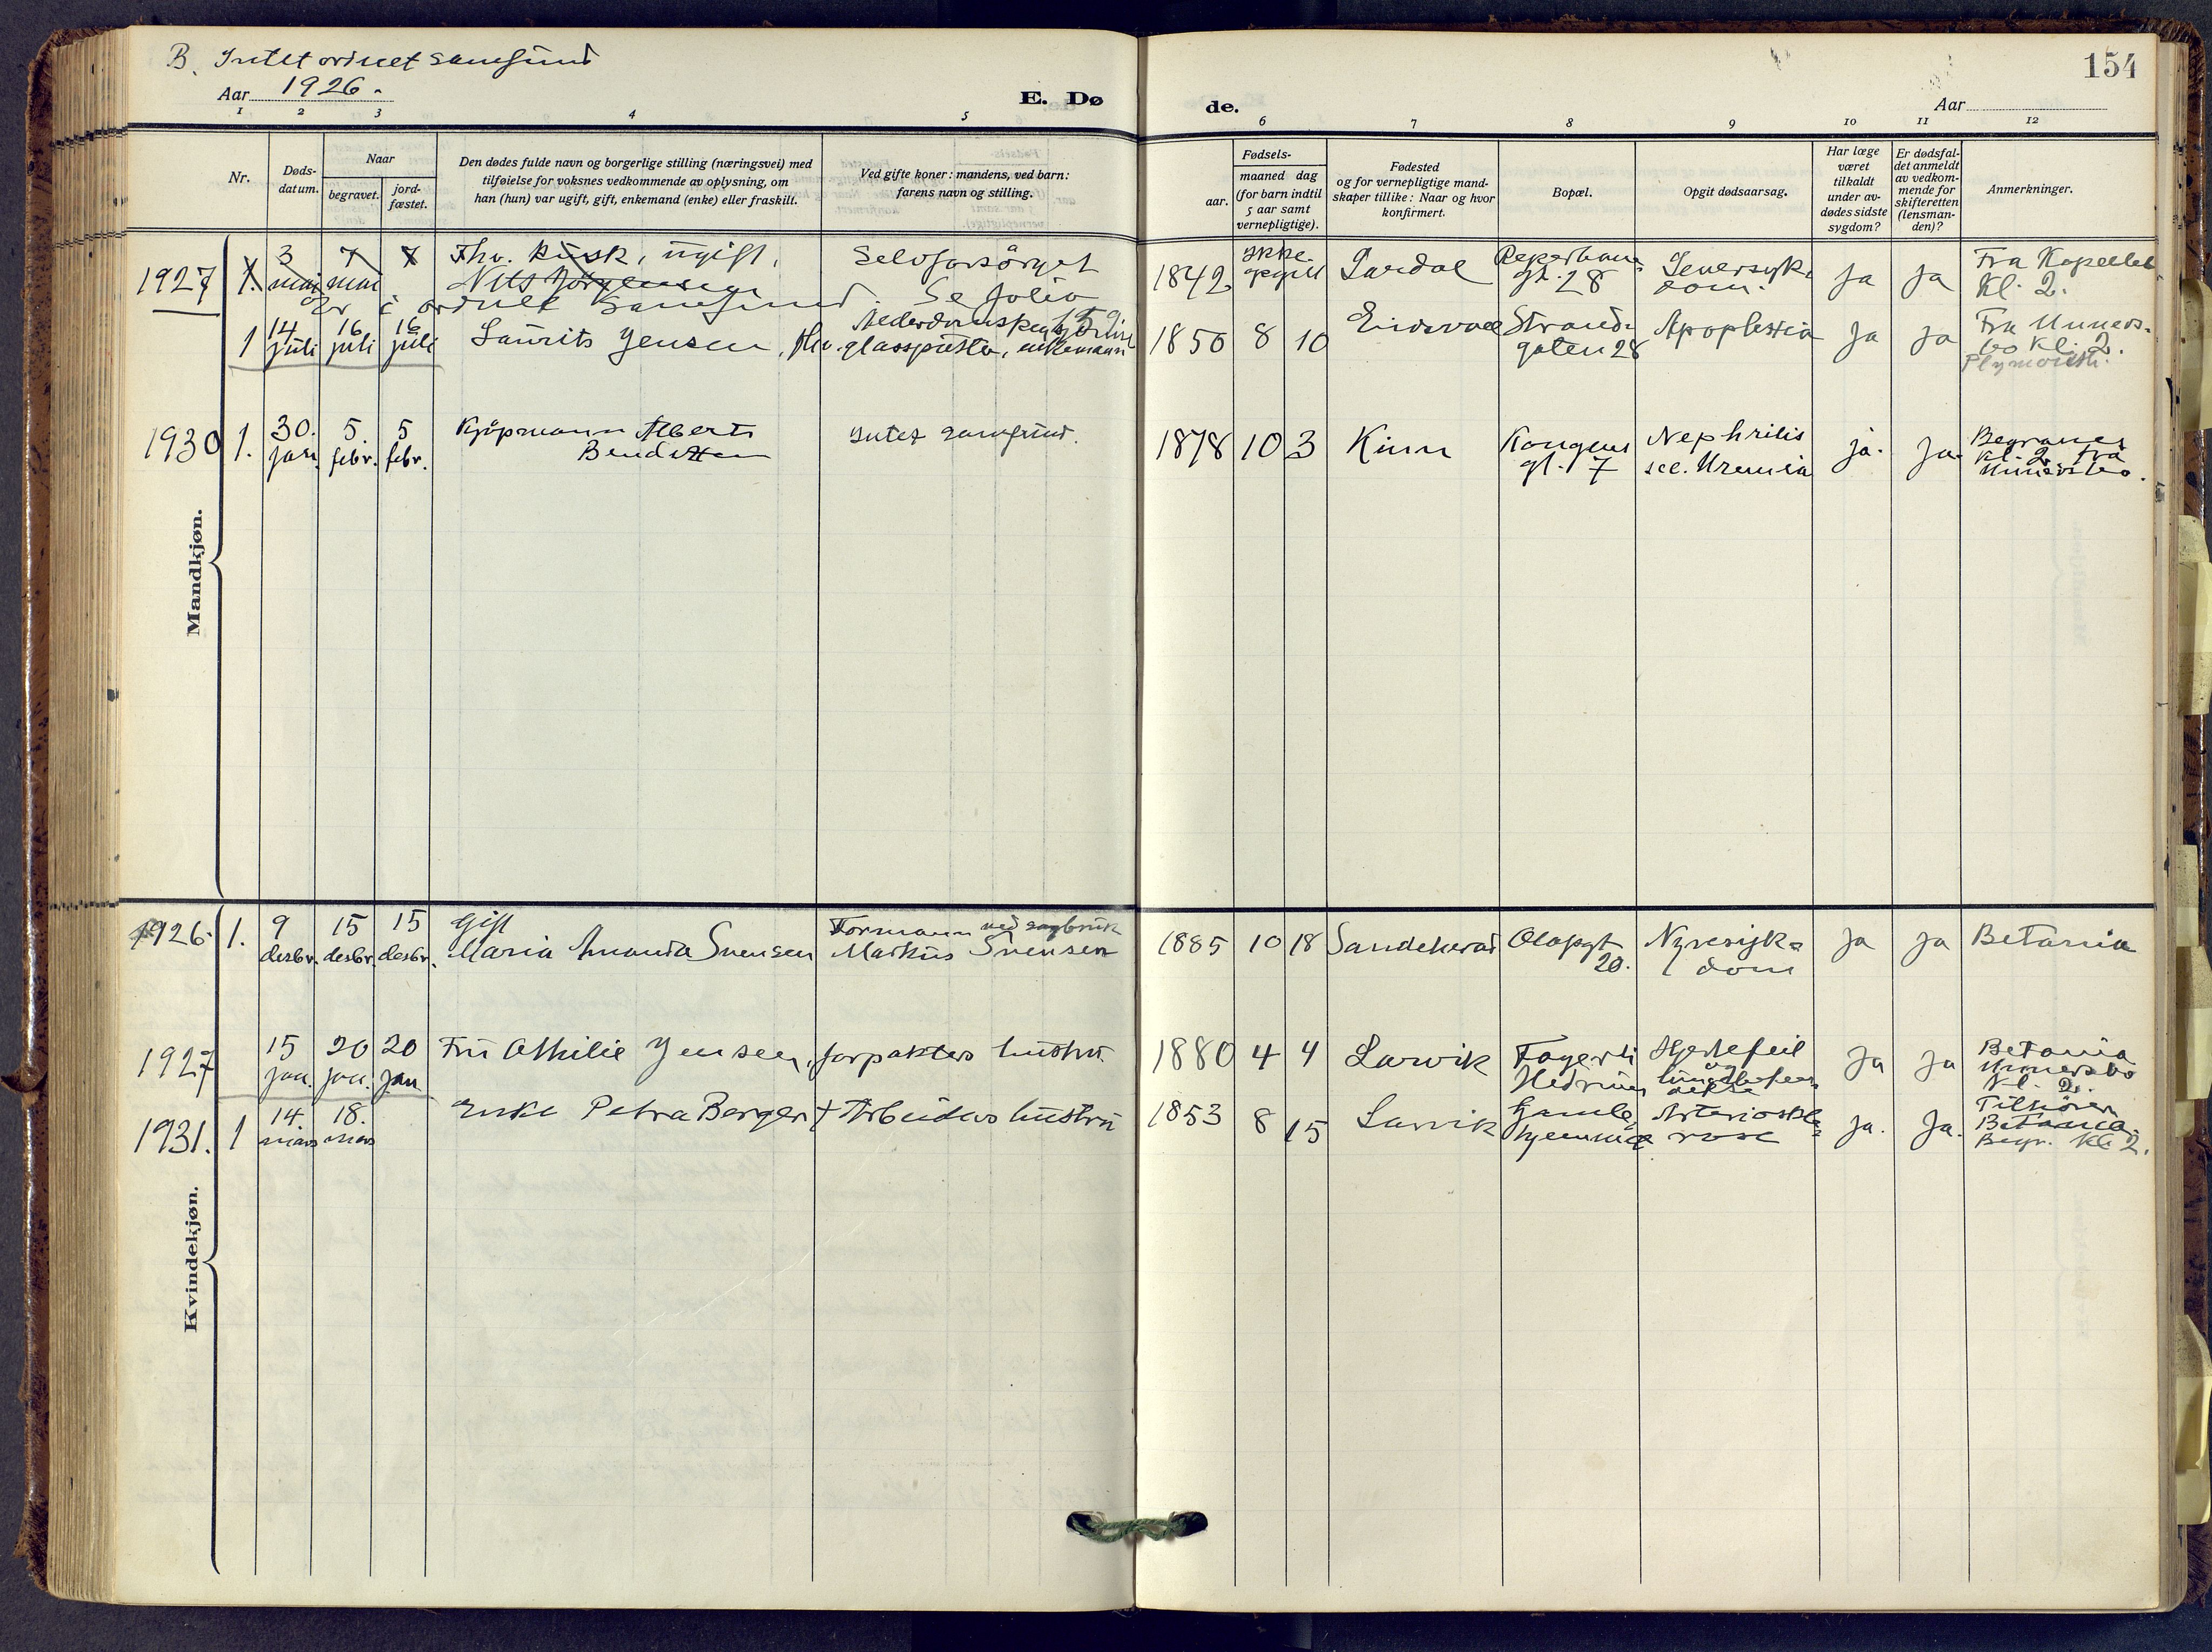 B. Intet ordnet samfund
Aar 1926.
E. Dø
de.
154
Aar
1 2 3 4 5 6 7 8 9 10 11 12
Nr.
Døds-
datum.
Naar
begravet.
jord-
fæstet.
Den dødes fulde navn og borgerlige stilling (næringsvei) med
tilføielse for voksnes vedkommende av oplysning, om
han (hun) var ugift, gift, enkemand (enke) eller fraskilt.
Ved gifte koner: mandens, ved barn:
farens navn og stilling.
Fødsels-
aar.
maaned dag
(for barn indtil
5 aar samt
vernepligtige).
Fødested
og for vernepligtige mand-
skaper tillike: Naar og hvor
konfirmert.
Bopæl.
Opgit dødsaarsag.
Har læge
været
tilkaldt
under av-
dødes sidste
sygdom?
Er dødsfal-
det anmeldt
av vedkom-
mende for
skifteretten
(lensman-
den)?
Anmerkninger.
Mandkjøn.
1927 1. 3 mai 7 mai 7 Fhv. kusk, ugift, Selvforsørget 1842 Ikke opgitt Lardal Reperbane gt. 28 Leversyk- dom. Ja Ja Fra Kapellet Kl. 2.
Nils Jørgensen
Er i ordnet samfund. Se folio 159
1 14 juli 16 juli 16 juli Laurits Jensen, fhv. glasspuster, enkemann 1850 8 10 Eidsvoll Strand- gaten 28 Apoplexia Ja Ja Fra Unners- bo Kl. 2.
Plymouth.
1930 1. 30. jan. 5. febr. 5 febr. Kjøpmann Albert Bendixen Intet samfund. 1878 10 3 Kinn Kongens gt. 7 Nephritis sec. Uremia ja. Ja. Begraves Kl. 2 fra Unnersbo.
Kvindekjøn.
1926. 1. 9 desbr. 15 desbr. 15 desbr. Gift Maria Amanda Svensen Formann ved sagbruk Markus Svensen 1885 10 18 Sandeherad Olafsgt 20. Nyresyk- dom Ja Ja Betania
1927 15 jan. 20 jan. 20 jan Fru Othilie Jensen, forpakters hustru. 1880 4 4 Larvik Fagerli Hedrum Hjertefeil og Ja Ja Betania Unnersbo Kl. 2.
1931. 1 14. mars 18. mars Enke Petra Berger Arbeiders hustru 1853 8 15 Larvik Gamle hjemmet Arterioskle- rose Ja. Ja. Tilhører Betania. Begr. kl 2.